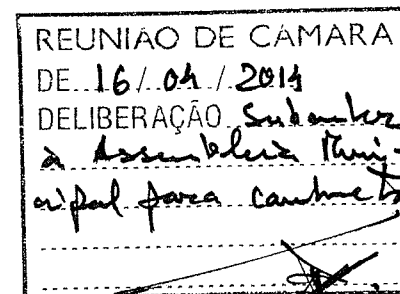 REUNIÃO DE CÂMARA
DE 16/04/2014
DELIBERAÇÃO Submeter
à Assembleia Muni-
cipal para conhecto